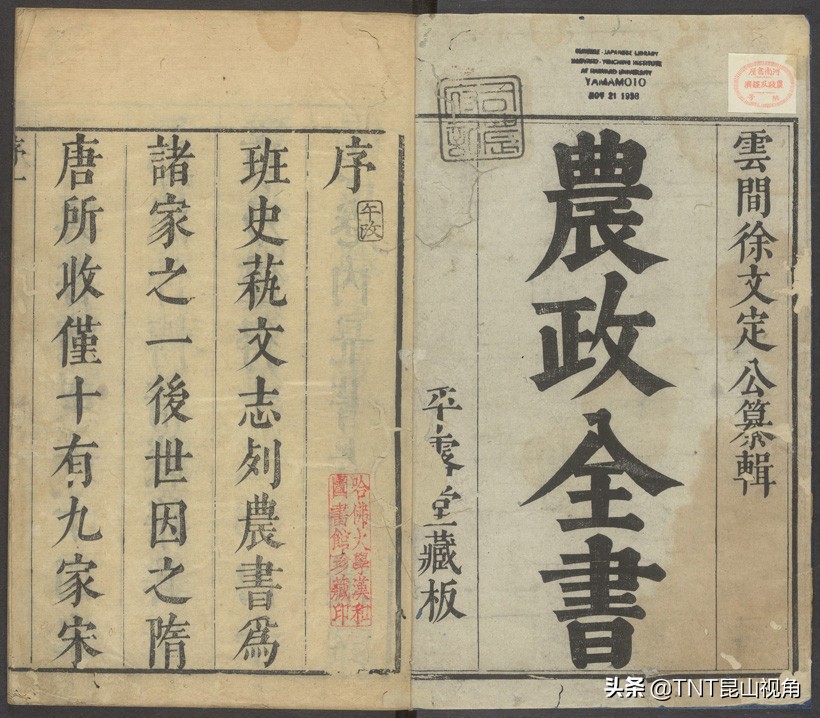 雲間徐文定公纂輯
農政全書
平露堂藏板
CHINESE-JAPANESE LIBRARY
HARVARD-YENCHING INSTITUTE
AT HARVARD UNIVERSITY
YAMAMOTO
NOV 21 1936
序
班史蓺文志列農書爲
諸家之一後世因之隋
唐所收僅十有九家宋
哈佛大學漢和
圖書館珍藏印
序一
头条 @TNT昆山视角